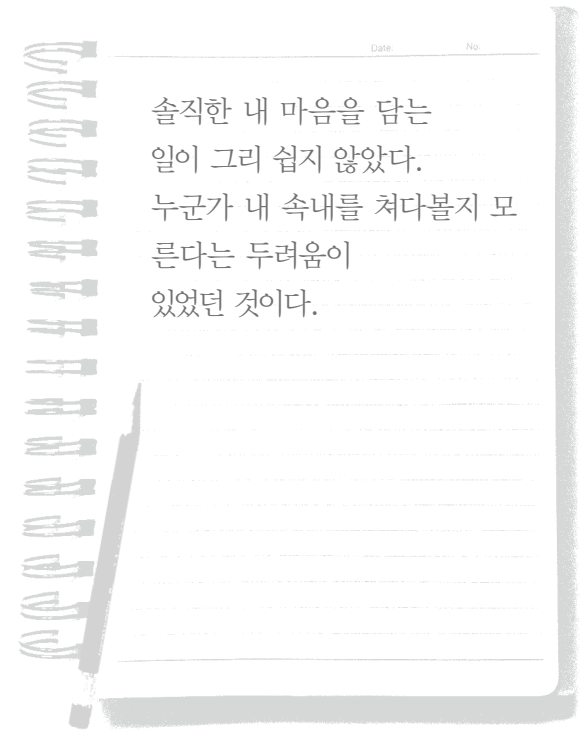 Date. No.
솔직한 내 마음을 담는
일이 그리 쉽지 않았다.
누군가 내 속내를 쳐다볼지 모
른다는 두려움이
있었던 것이다.